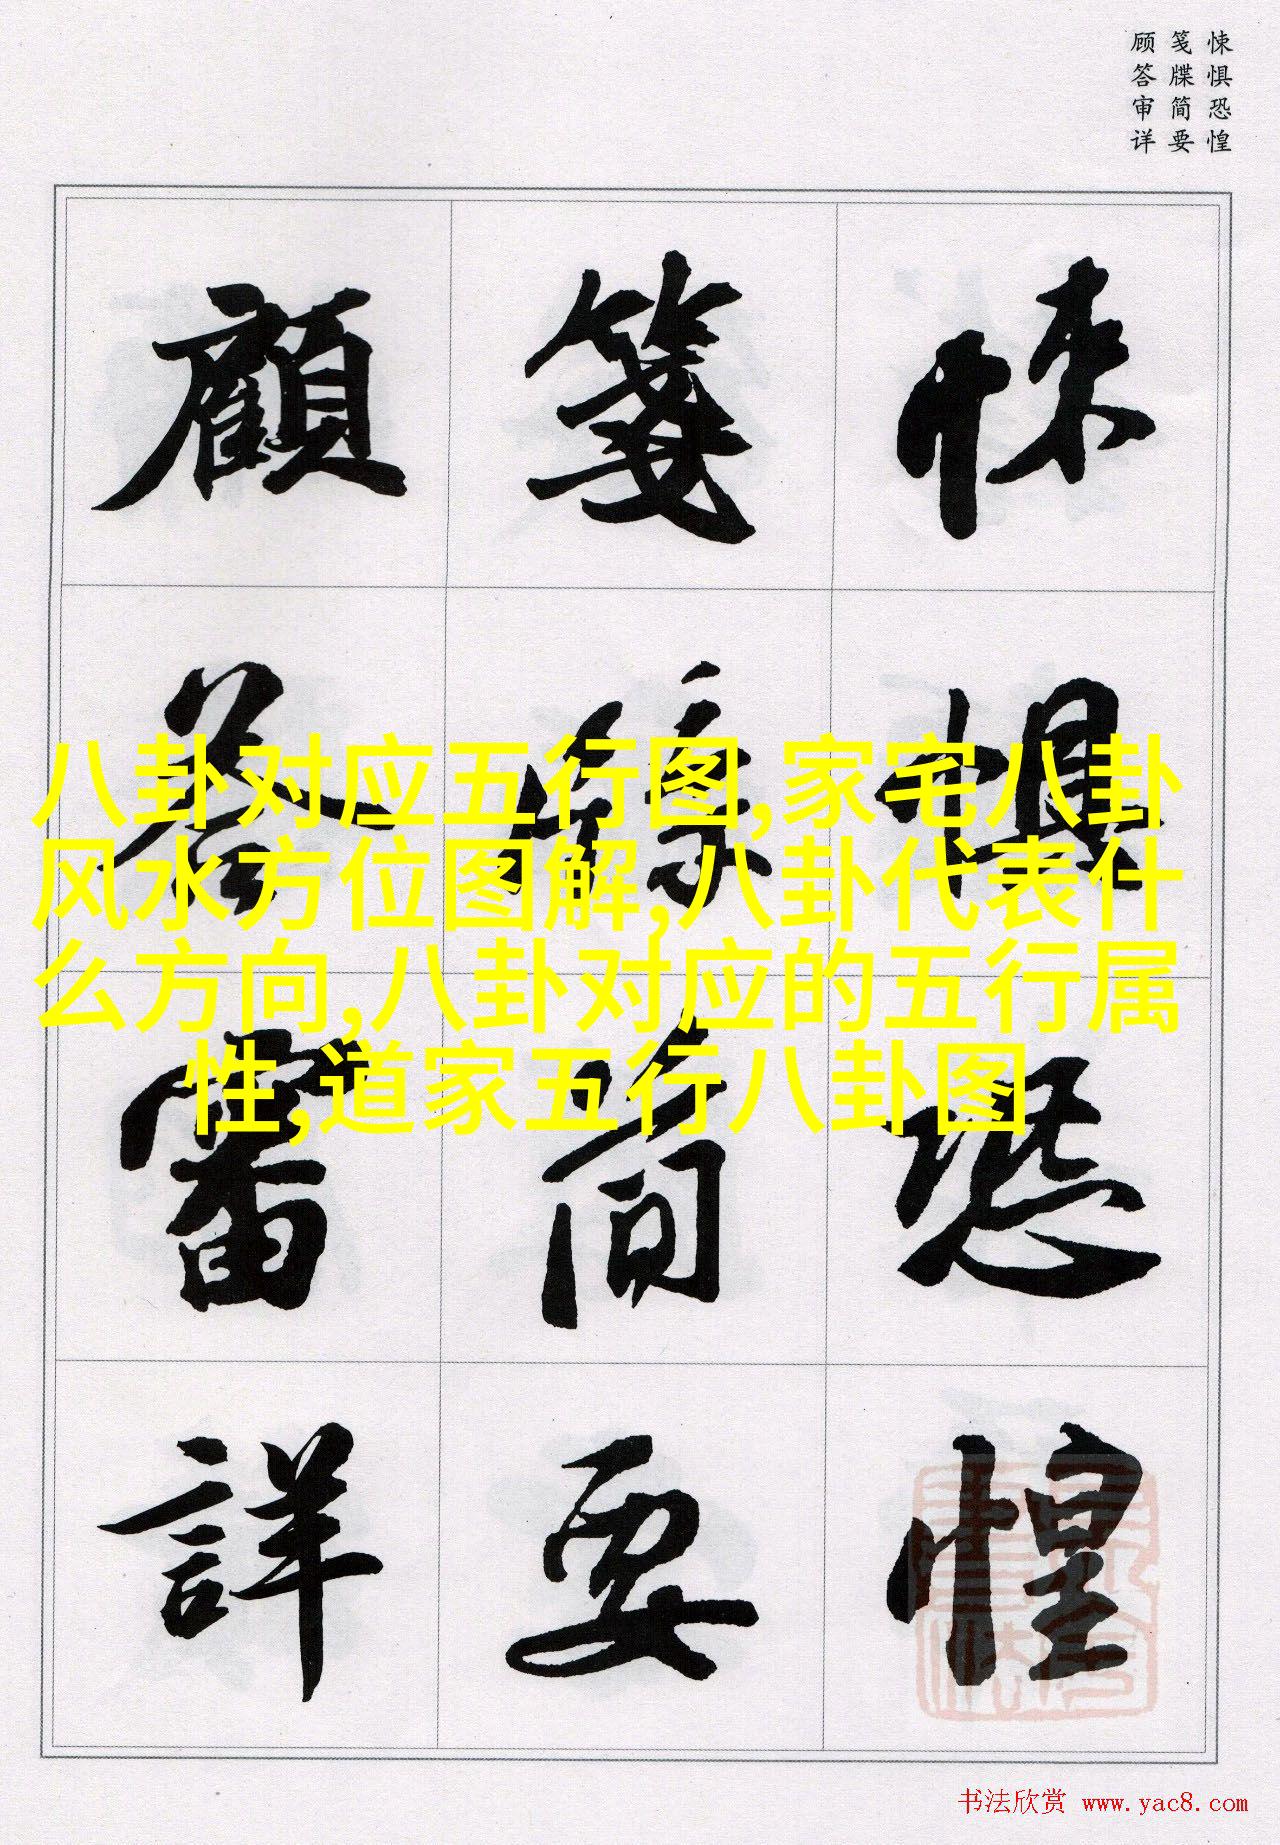 悚惧恐惶
笺牒简要
顾答审详
悚懼恐惶
箋牒简要
顧答審詳
八卦对应五行图,家宅八卦
风水方位图解,八卦代表什
么方向,八卦对应的五行属
性,道家五行八卦图
书法欣赏 www.yac8.com